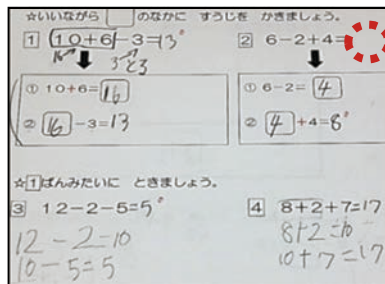 ☆いいながら □ のなかに すうじを かきましょう。
1 (10+6)-3=13
16 3と3
2 6-2+4=
① 10+6=16
② 16-3=13
① 6-2=4
② 4+4=8
☆1ばんみたいに ときましょう。
3 12-2-5=5
12-2=10
10-5=5
4 8+2+7=17
8+2=10
10+7=17